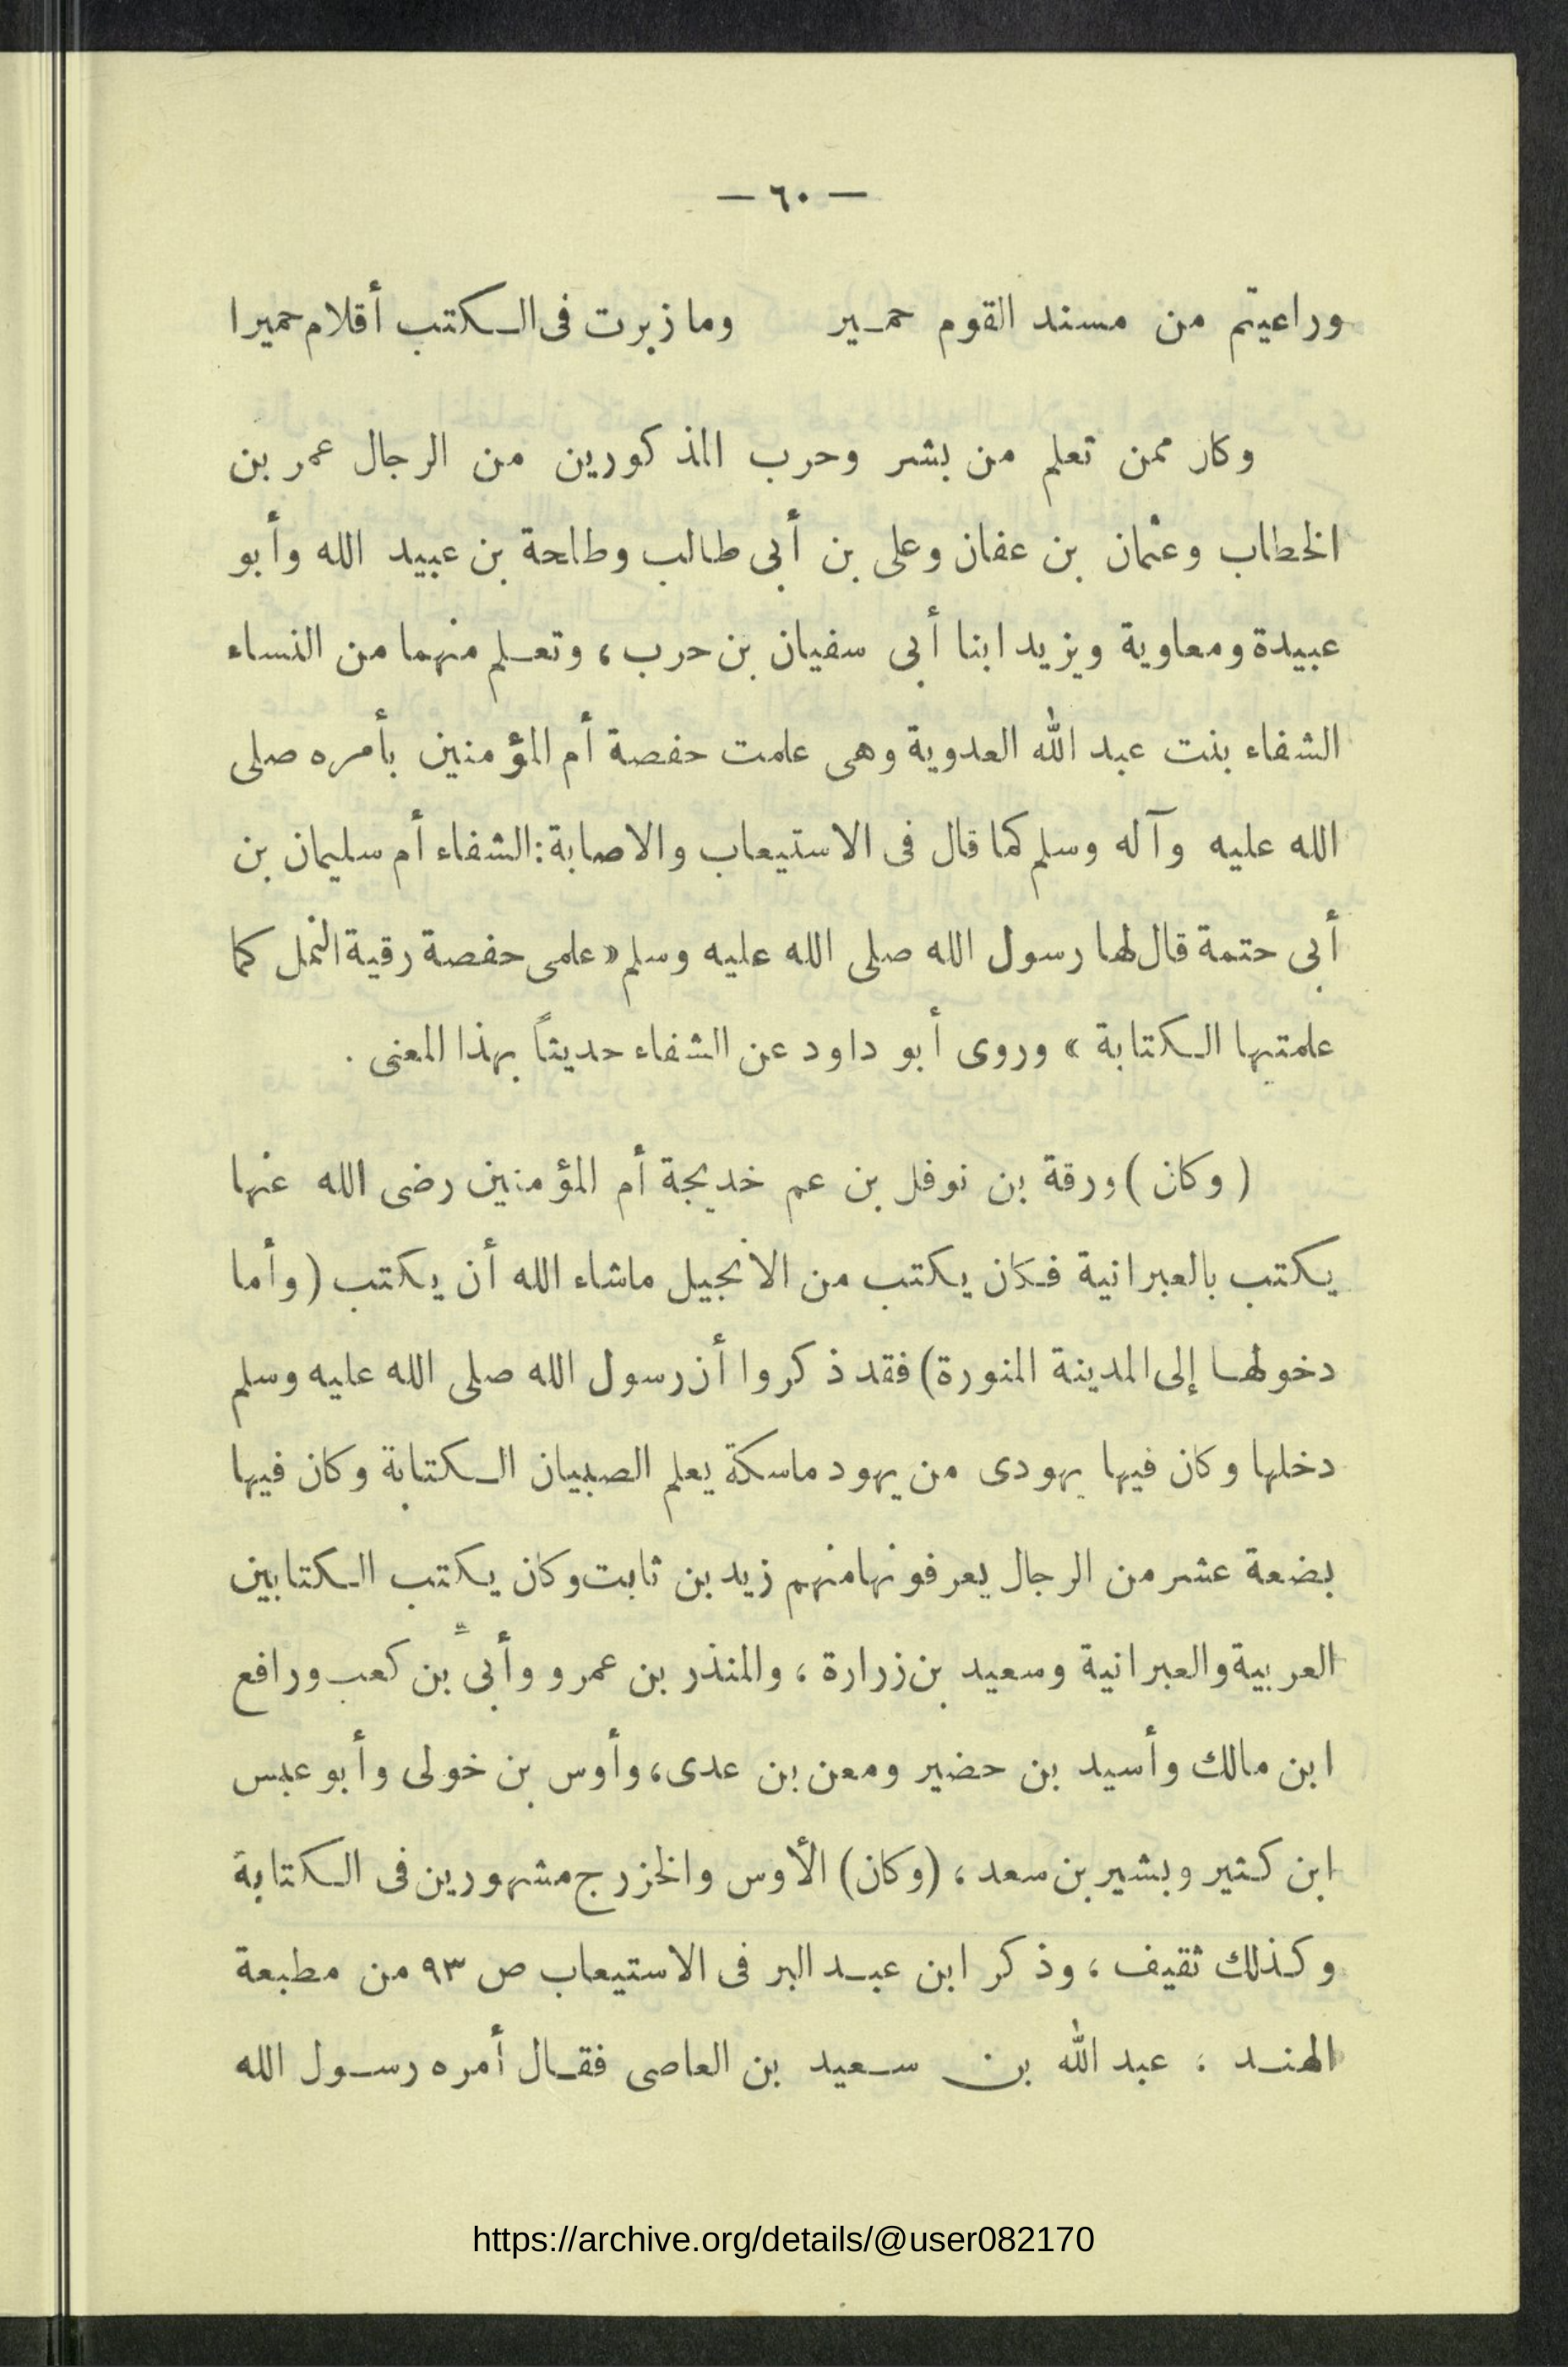 — ٦٠ —
وراعيتم من مسند القوم حمير وما زبرت فى الكتب أقلام حميرا
وكان ممن تعلم من بشر وحرب المذكورين من الرجال عمر بن
الخطاب وعثمان بن عفان وعلى بن أبى طالب وطلحة بن عبيد الله وأبو
عبيدة ومعاوية ويزيد ابنا أبى سفيان بن حرب، وتعلم منهما من النساء
الشفاء بنت عبد الله العدوية وهى علمت حفصة أم المؤمنين بأمره صلى
الله عليه وآله وسلم كما قال فى الاستيعاب والاصابة: الشفاء أم سليمان بن
أبى حتمة قال لها رسول الله صلى الله عليه وسلم «علمى حفصة رقية النمل كما
علمتيها الكتابة» وروى أبو داود عن الشفاء حديثاً بهذا المعنى .
( وكان ) ورقة بن نوفل بن عم خديجة أم المؤمنين رضى الله عنها
يكتب بالعبرانية فكان يكتب من الانجيل ماشاء الله أن يكتب (وأما
دخولها إلى المدينة المنورة) فقد ذكروا أن رسول الله صلى الله عليه وسلم
دخلها وكان فيها يهودى من يهود ماسكة يعلم الصبيان الكتابة وكان فيها
بضعة عشر من الرجال يعرفونها منهم زيد بن ثابت وكان يكتب الكتابين
العربية والعبرانية وسعيد بن زرارة ، والمنذر بن عمرو وأبىّ بن كعب ورافع
ابن مالك وأسيد بن حضير ومعن بن عدى، وأوس بن خولى وأبو عبس
ابن كثير وبشير بن سعد ، (وكان) الأوس والخزرج مشهورين فى الكتابة
وكذلك ثقيف ، وذكر ابن عبد البر فى الاستيعاب ص ٩٣ من مطبعة
الهند : عبد الله بن سعيد بن العاصى فقال أمره رسول الله
https://archive.org/details/@user082170